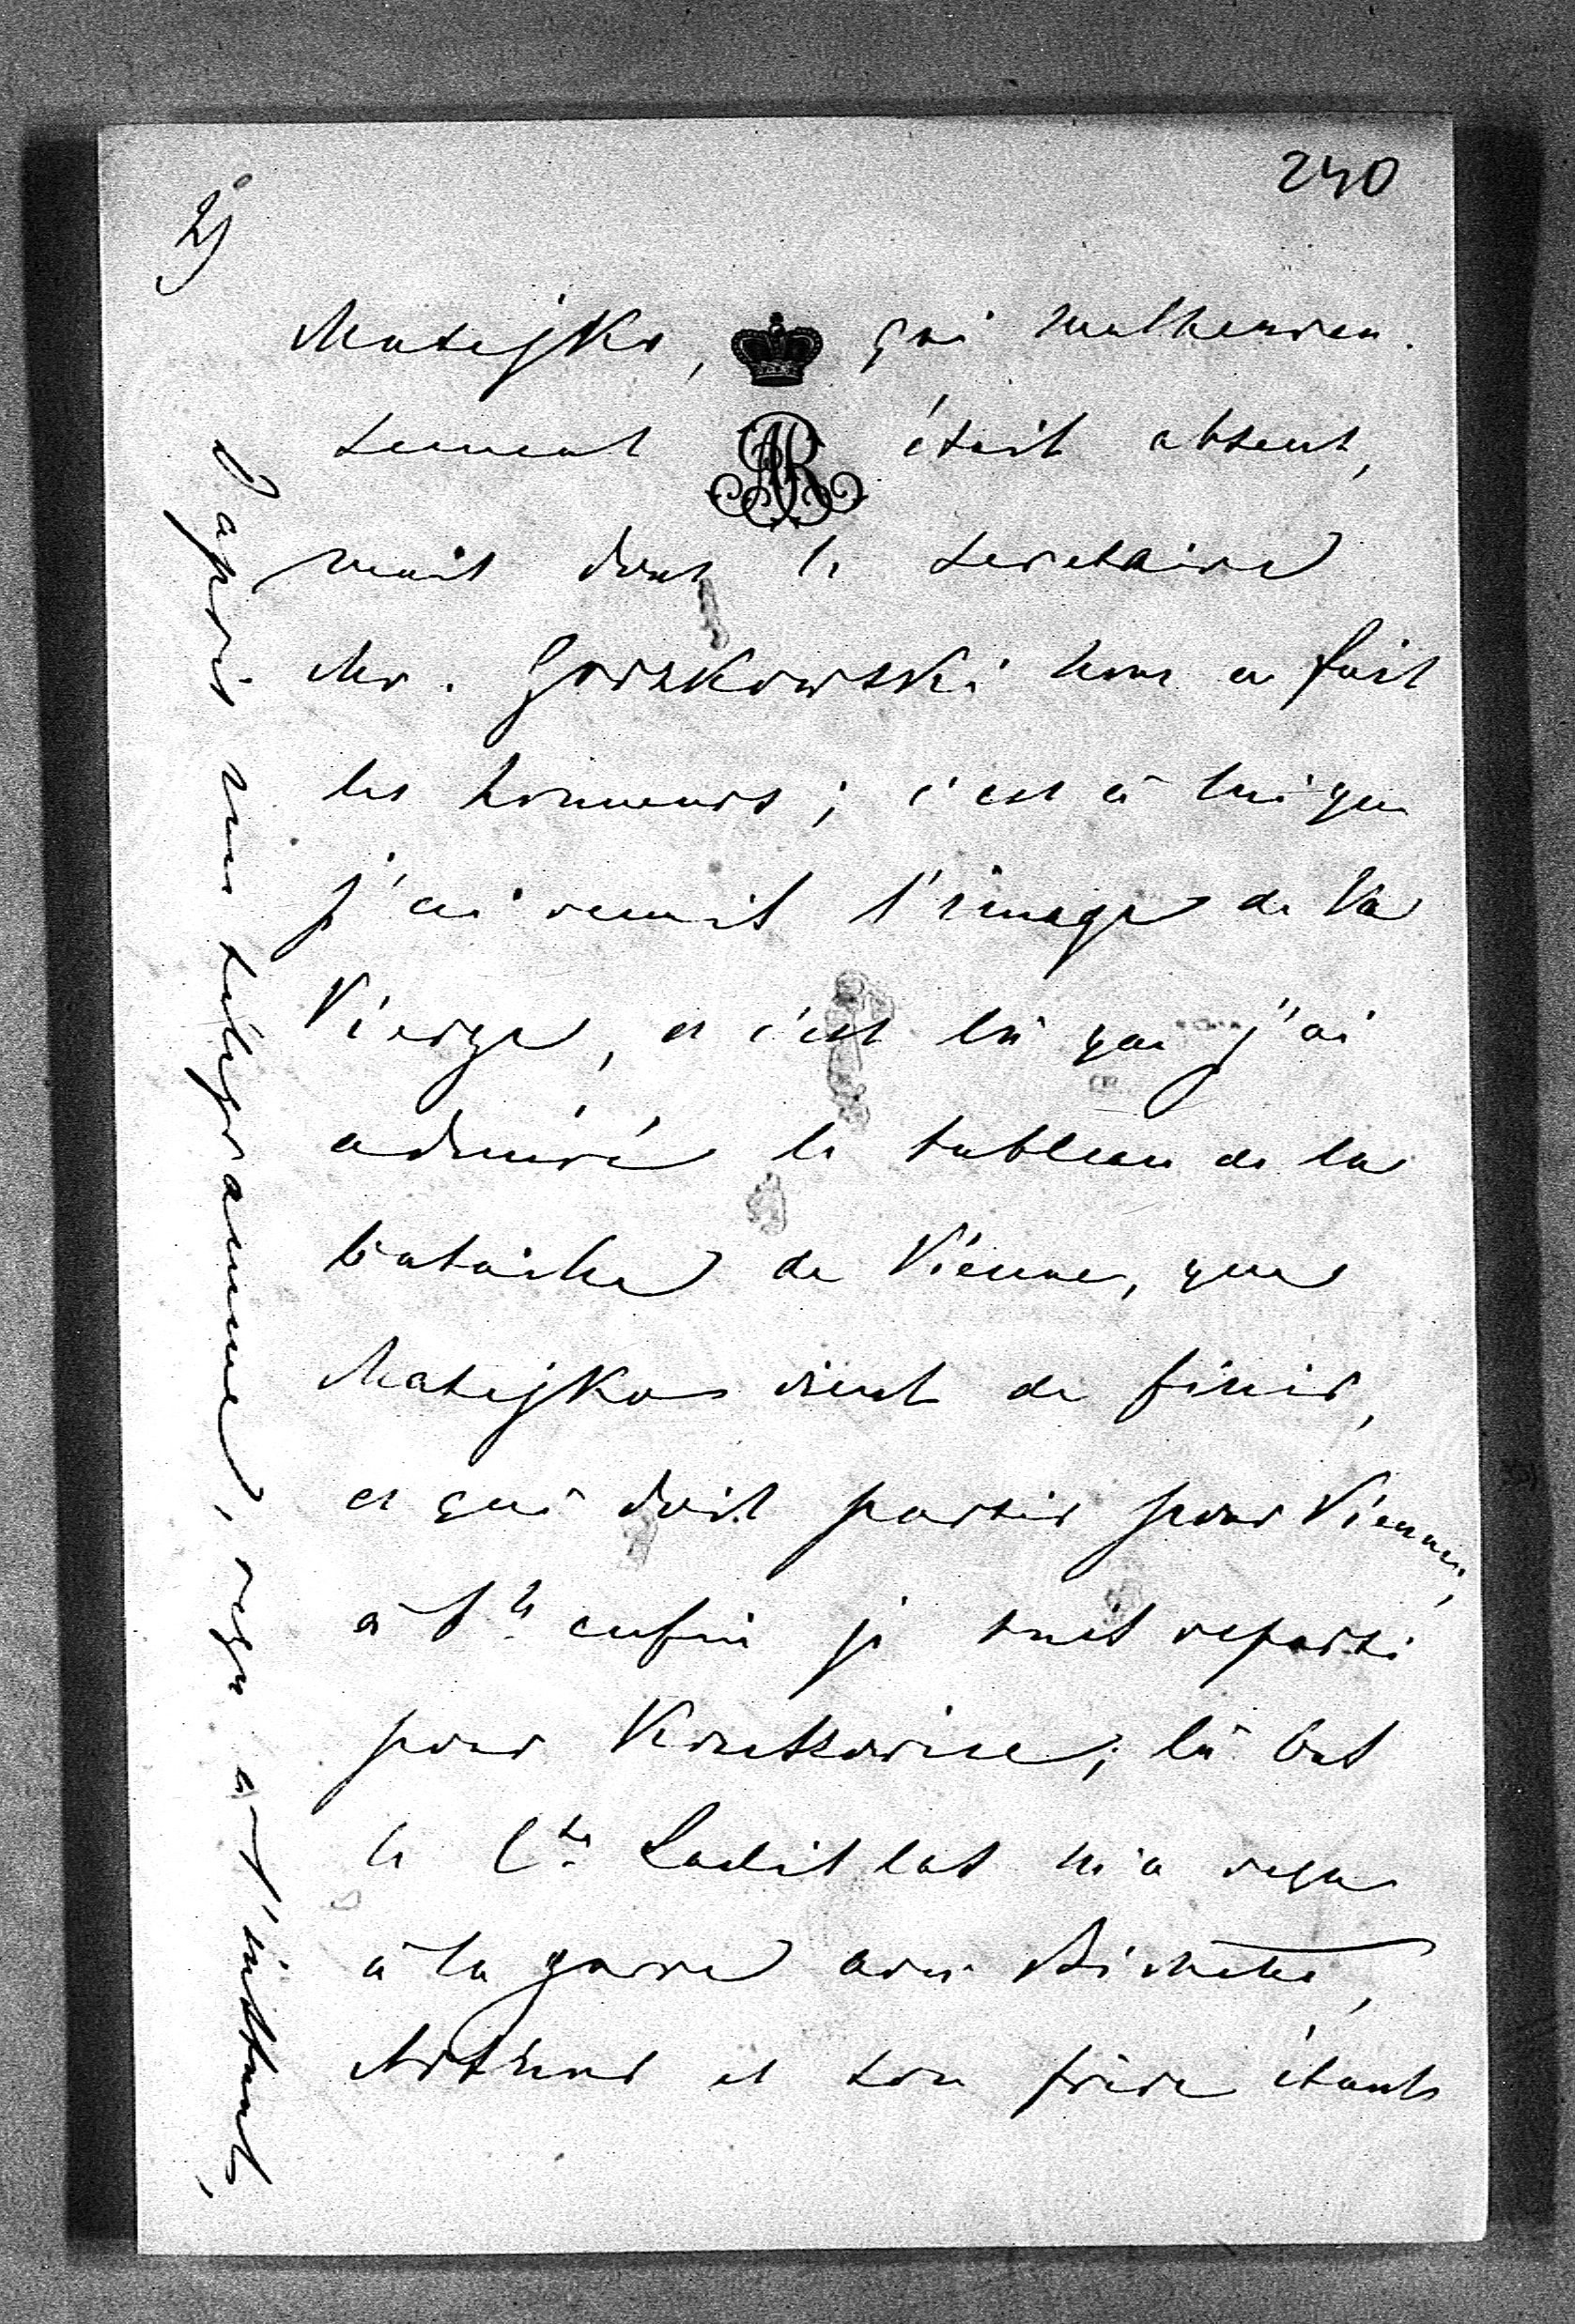 240
2)
Matejko, qui malheureu-
sement était absent,
mais dont le secretaire
Mr. Gorzkowski nous en fait
les honneurs; c'est à lui que
j'ai remis l'image de la
Vierge, et c'est là que j'ai
admiré le tableau de la
bataille de Vienne, que
Matejko vient de finir,
et qui doit partir pour Vienne;
à 1h enfin je suis reparti
pour ; là bas
le Cte Ladislas m'a reçu
à la garre avec
Arthur et son frère étant
D'après un télégramme, reçu à l'instant,